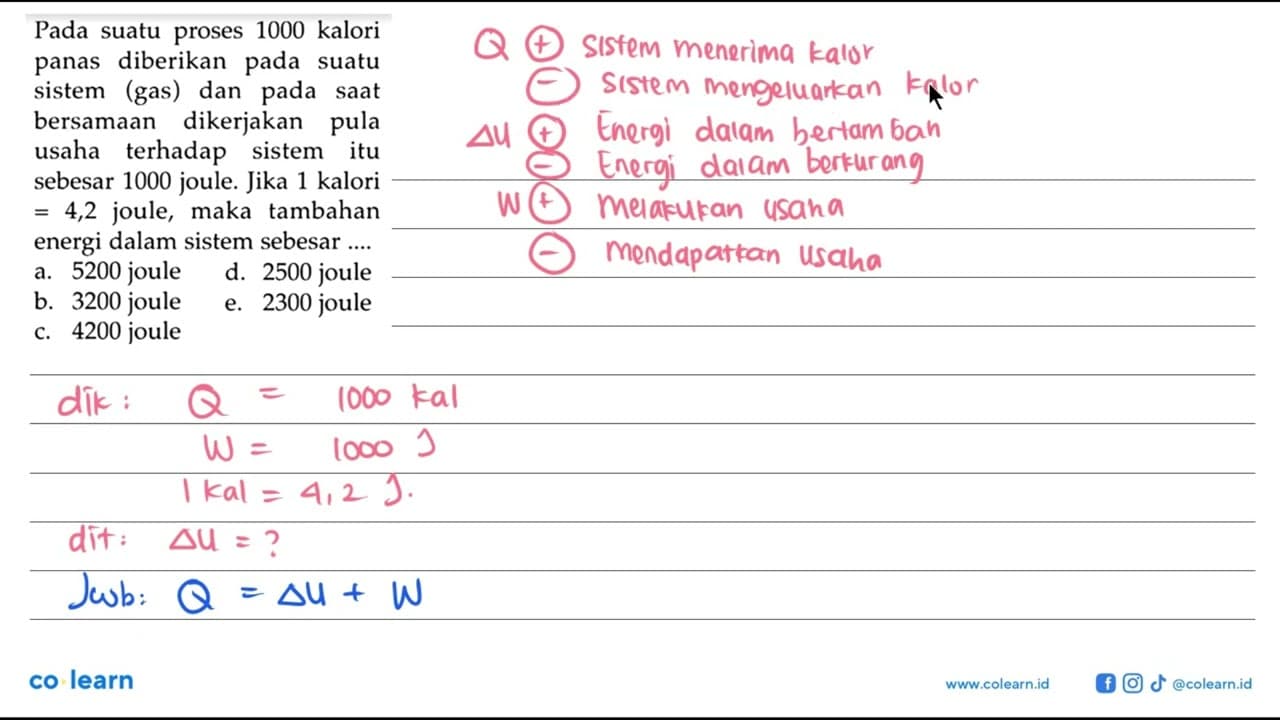 Pada suatu proses 1000 kalori
panas diberikan pada suatu
sistem (gas) dan pada saat
bersamaan dikerjakan pula
usaha terhadap sistem itu
sebesar 1000 joule. Jika 1 kalori
= 4,2 joule, maka tambahan
energi dalam sistem sebesar ....
a. 5200 joule d. 2500 joule
b. 3200 joule e. 2300 joule
c. 4200 joule
Q (+) sistem menerima kalor
(-) sistem mengeluarkan kalor
ΔU (+) Energi dalam bertambah
(-) Energi dalam berkurang
W (+) melakukan usaha
(-) mendapatkan usaha
dik: Q = 1000 kal
W = 1000 J
1 kal = 4,2 J.
dit: ΔU = ?
Jwb: Q = ΔU + W
co learn
www.colearn.id
@colearn.id